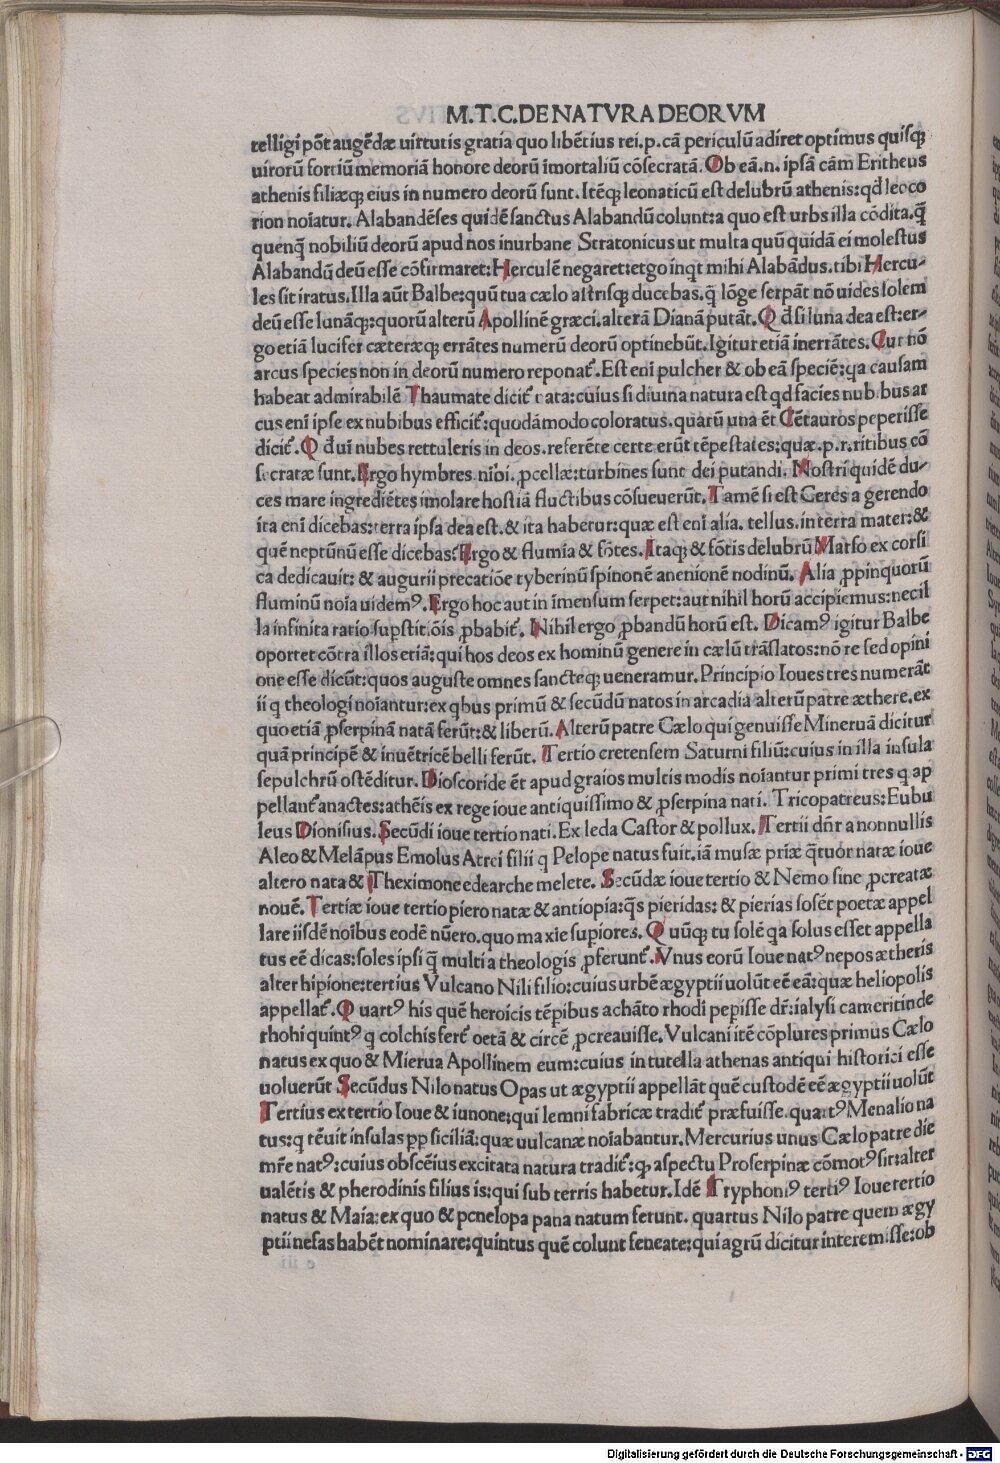 M.T.C.DE NATVRA DEORVM
telligi põt augẽdæ uirtutis gratia quo libẽtius rei.p.cã periculũ adiret optimus quisq;
uirorũ fortiũ memoriã honore deorũ imortaliũ cõsecratã. Ob eã.n. ipsã cãm Eritheus
athenis filiæq; eius in numero deorũ sunt. Itẽq; leonaticũ est delubrũ athenis: qđ leoco
rion noiatur. Alabandẽses quidẽ sanctus Alabandũ colunt: a quo est urbs illa cõdita. q̃
quenq̃ nobiliũ deorũ apud nos inurbane Stratonicus ut multa quũ quidã ei molestus
Alabandũ deũ esse cõfirmaret: Herculẽ negaret: ergo inqt mihi Alabãdus. tibi Hercu-
les sit iratus. Illa aũt Balbe: quũ tua cælo astrisq; ducebas. q̃ lõge serpãt nõ uides solem
deũ esse lunãq;: quorũ alterũ Apollinẽ græci. alterã Dianã putãt. Q đ si luna dea est: er-
go etiã lucifer cæteræq; errãtes numerũ deorũ optinebũt. Igitur etiã inerrãtes. Cur nõ
arcus species non in deorũ numero reponat᷑. Est eni pulcher & ob eã speciẽ: qa causam
habeat admirabilẽ Thaumate dicit᷑ nata: cuius si diuina natura est qđ facies nubibus ar
cus eni ipse ex nubibus efficit᷑: quodãmodo coloratus. quarũ una ẽt Cẽtauros peperisse
dicit᷑. Q đ ui nubes rettuleris in deos. referẽte certe erũt tẽpestates: quæ.p.r. ritibus cõ
secratæ sunt. Ergo hymbres nibi. ꝓcellæ: turbines sunt dei putandi. Nostri quidẽ du-
ces mare ingrediẽtes imolare hostiã fluctibus cõsueuerũt. Tamẽ si est Ceres a gerendo
ita eni dicebas: terra ipsa dea est. & ita habetur: quæ est eni alia. tellus. in terra mater: &
quẽ neptũnũ esse dicebas: Ergo & flumia & fõtes. Itaq; & fõtis delubrũ Marso ex corsi
ca dedicauit: & augurii precatiõe tyberinũ spinonẽ anenionẽ nodinũ. Alia ꝓpinquorũ
fluminũ noia uidemꝰ. Ergo hoc aut in imensum serpet: aut nihil horũ accipiemus: nec il
la infinita ratio supstitiõis ꝓbabit᷑. Nihil ergo ꝓbandũ horũ est. Dicamꝰ igitur Balbe
oportet cõtra illos etiã: qui hos deos ex hominũ genere in cælũ trãslatos: nõ re sed opini
one esse dicũt: quos auguste omnes sancteq; ueneramur. Principio Ioues tres numerãt
ii q theologi noiantur: ex qbus primũ & secũdũ natos in arcadia alterũ patre æthere. ex
quo etiã ꝓserpinã natã ferũt: & liberũ. Alterũ patre Cælo qui genuisse Mineruã dicitur
quã principẽ & inuẽtricẽ belli ferũt. Tertio cretensem Saturni filiũ: cuius in illa insula
sepulchrũ ostẽditur. Dioscoride ẽt apud graios multis modis noiantur primi tres q ap
pellant᷑ anactes: athẽis ex rege ioue antiquissimo & ꝓserpina nati. Tricopatreus: Eubu
leus Dionisius. Secũdi ioue tertio nati. Ex leda Castor & pollux. Tertii dñr a nonnullis
Aleo & Melãpus Emolus Atrei filii q Pelope natus fuit. iã musæ priæ q̃tuor natæ ioue
altero nata & Theximone edearche melete. Secũdæ ioue tertio & Nemo sine ꝓcreatæ
nouẽ. Tertiæ ioue tertio piero natæ & antiopia: q̃s pieridas: & pierias solẽt poetæ appel
lare iisdẽ noibus eodẽ nũero. quo maxie supiores. Q uũq; tu solẽ qa solus esset appella
tus eẽ dicas: soles ipsi q̃ multi a theologis ꝓferunt᷑. Vnus eorũ Ioue natꝰ nepos ætheris
alter hipione: tertius Vulcano Nili filio: cuius urbẽ ægyptii uolũt eẽ eã: quæ heliopolis
appellat᷑. Q uartꝰ his quẽ heroicis tẽpibus achãto rhodi pepisse dr̃: ialysi cameritinde
rhohi quintꝰ q colchis fert᷑ oetã & circẽ ꝓcreauisse. Vulcani itẽ cõplures primus Cælo
natus ex quo & Mierua Apollinem eum: cuius in tutella athenas antiqui historici esse
uoluerũt Secũdus Nilo natus Opas ut ægyptii appellãt quẽ custodẽ eẽ ægyptii uolũt
Tertius ex tertio Ioue & iunone: qui lemni fabricæ tradit᷑ præfuisse. quartꝰ Menalio na
tus: q tẽuit insulas pp siciliã: quæ uulcanæ noiabantur. Mercurius unus Cælo patre die
mr̃e natꝰ: cuius obscẽius excitata natura tradit᷑: q; aspectu Proserpinæ cõmotꝰ sit: alter
ualẽtis & pherodinis filius is: qui sub terris habetur. Idẽ Tryphoniꝰ tertiꝰ Ioue tertio
natus & Maia: ex quo & penelopa pana natum ferunt. quartus Nilo patre quem ægy
ptii nefas habẽt nominare: quintus quẽ colunt feneate: qui agrũ dicitur interemisse: ob
Digitalisierung gefördert durch die Deutsche Forschungsgemeinschaft - DFG